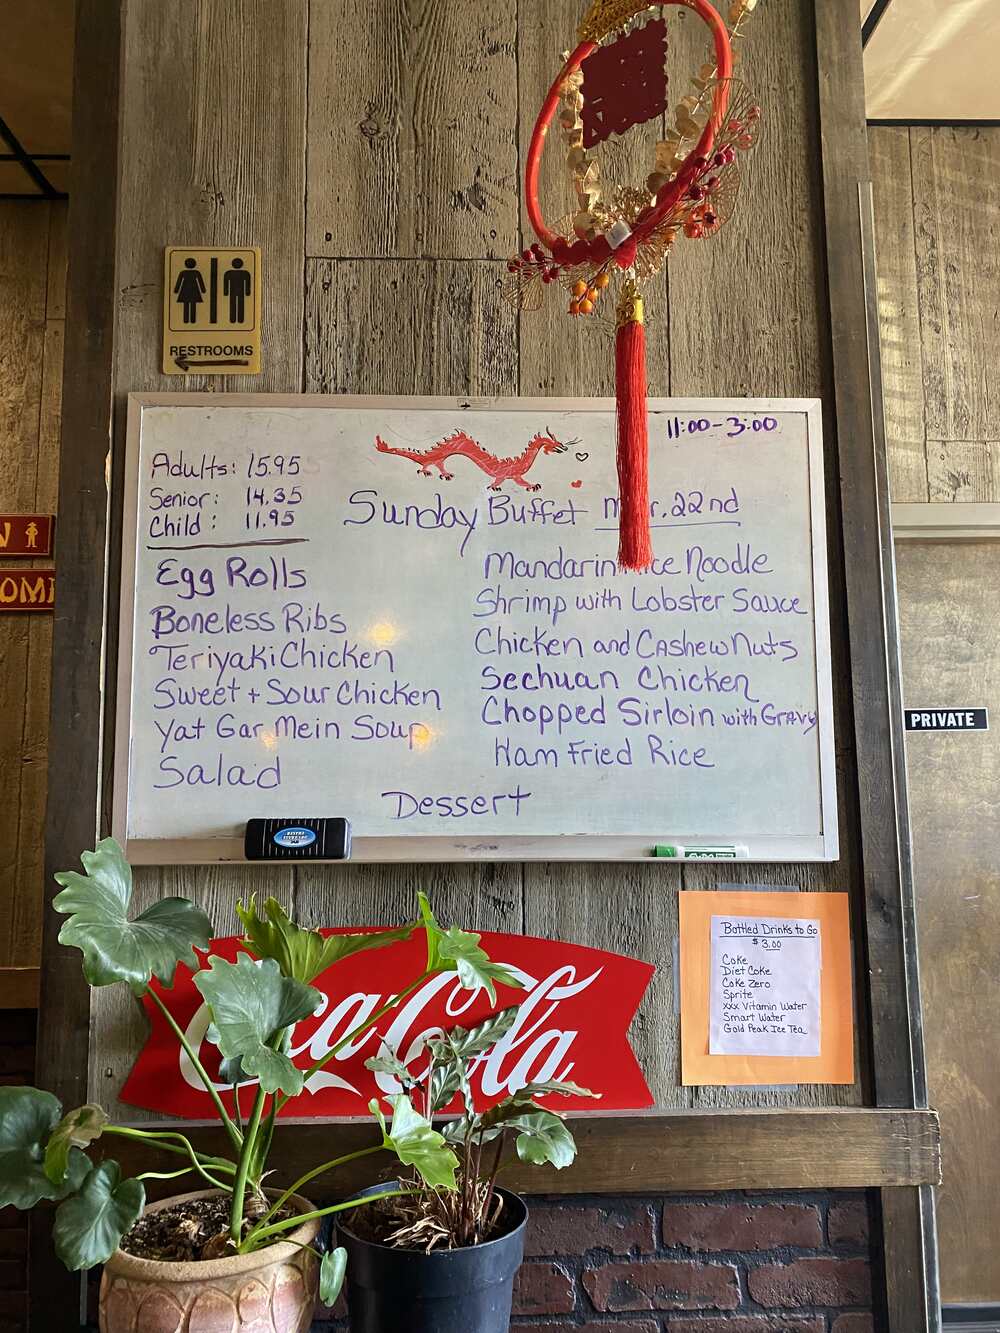 RESTROOMS
11:00-3:00
Adults: 15.95
Senior: 14.35
Child: 11.95
Sunday Buffet 22nd
Egg Rolls
Boneless Ribs
Teriyaki Chicken
Sweet + Sour Chicken
Yat Gar Mein Soup
Salad
Mandarin Noodle
Shrimp with Lobster Sauce
Chicken and Cashew Nuts
Sechuan Chicken
Chopped Sirloin with Gravy
Ham Fried Rice
Dessert
PRIVATE
Coca Cola
Bottled Drinks to Go
$3.00
Coke
Diet Coke
Coke Zero
Sprite
XXX Vitamin Water
Smart Water
Gold Peak Ice Tea